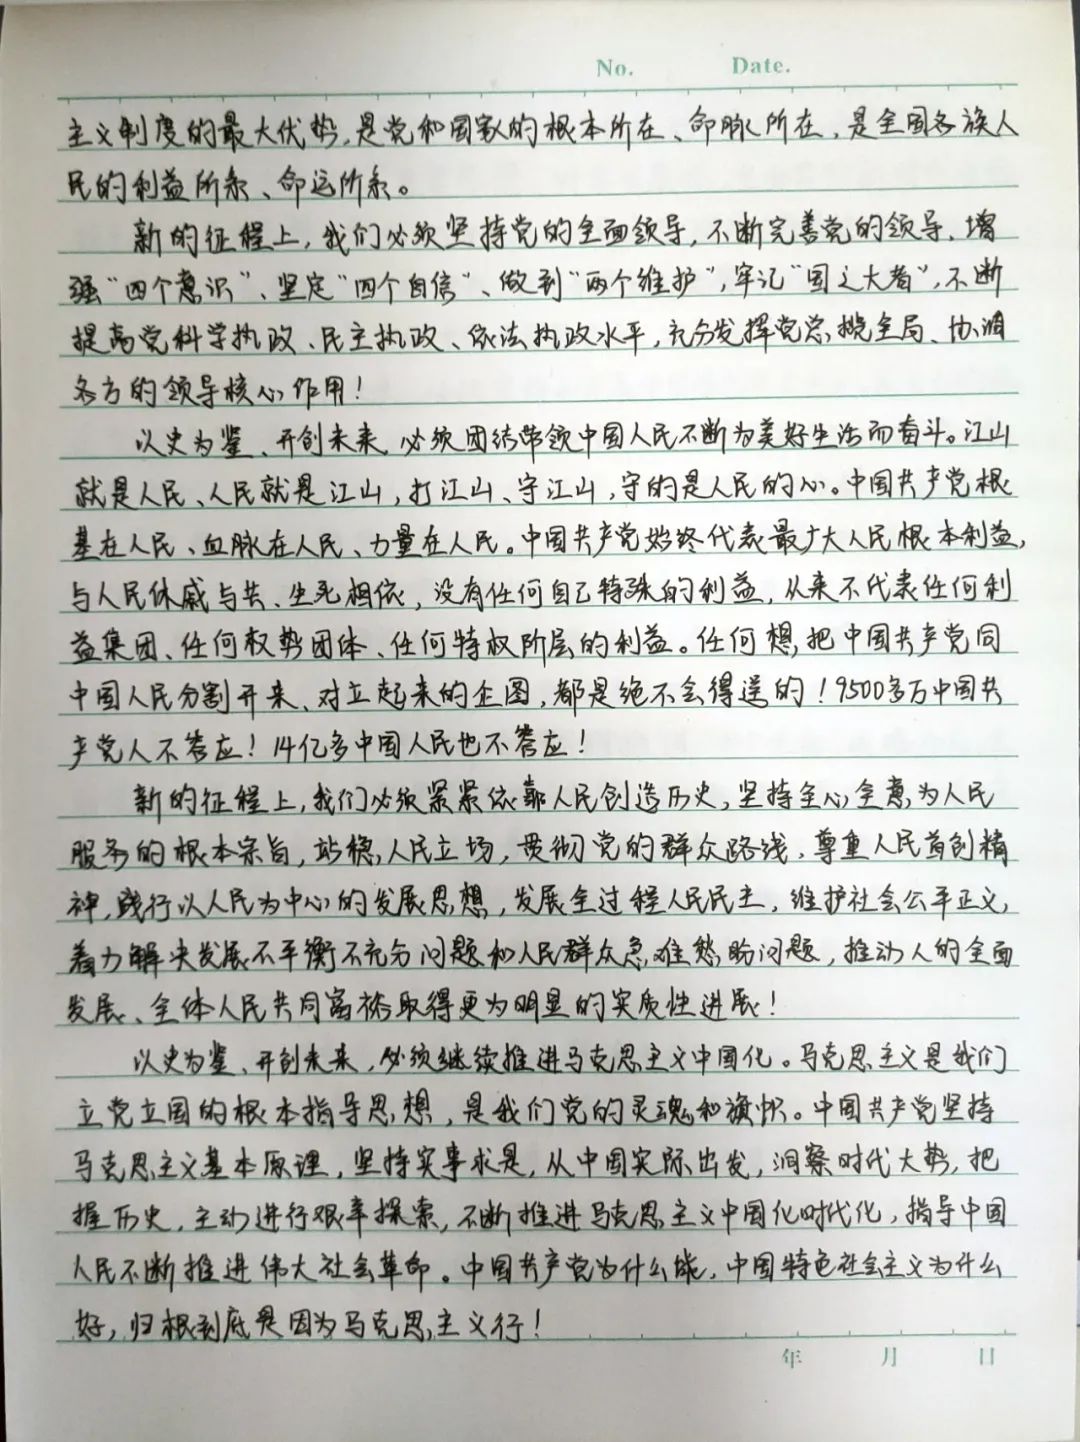 No. Date.
主义制度的最大优势,是党和国家的根本所在、命脉所在,是全国各族人
民的利益所系、命运所系。
新的征程上,我们必须坚持党的全面领导,不断完善党的领导、增
强“四个意识”、坚定“四个自信”、做到“两个维护”,牢记“国之大者”,不断
提高党科学执政、民主执政、依法执政水平,充分发挥党总揽全局、协调
各方的领导核心作用!
以史为鉴、开创未来,必须团结带领中国人民不断为美好生活而奋斗。江山
就是人民、人民就是江山,打江山、守江山,守的是人民的心。中国共产党根
基在人民、血脉在人民、力量在人民。中国共产党始终代表最广大人民根本利益,
与人民休戚与共、生死相依,没有任何自己特殊的利益,从来不代表任何利
益集团、任何权势团体、任何特权阶层的利益。任何想把中国共产党同
中国人民分割开来、对立起来的企图,都是绝不会得逞的!9500多万中国共
产党人不答应!14亿多中国人民也不答应!
新的征程上,我们必须紧紧依靠人民创造历史,坚持全心全意为人民
服务的根本宗旨,站稳人民立场,贯彻党的群众路线,尊重人民首创精
神,践行以人民为中心的发展思想,发展全过程人民民主,维护社会公平正义,
着力解决发展不平衡不充分问题和人民群众急难愁盼问题,推动人的全面
发展、全体人民共同富裕取得更为明显的实质性进展!
以史为鉴、开创未来,必须继续推进马克思主义中国化。马克思主义是我们
立党立国的根本指导思想,是我们党的灵魂和旗帜。中国共产党坚持
马克思主义基本原理,坚持实事求是,从中国实际出发,洞察时代大势,把
握历史,主动进行艰辛探索,不断推进马克思主义中国化时代化,指导中国
人民不断推进伟大社会革命。中国共产党为什么能,中国特色社会主义为什么
好,归根到底是因为马克思主义行!
年 月 日